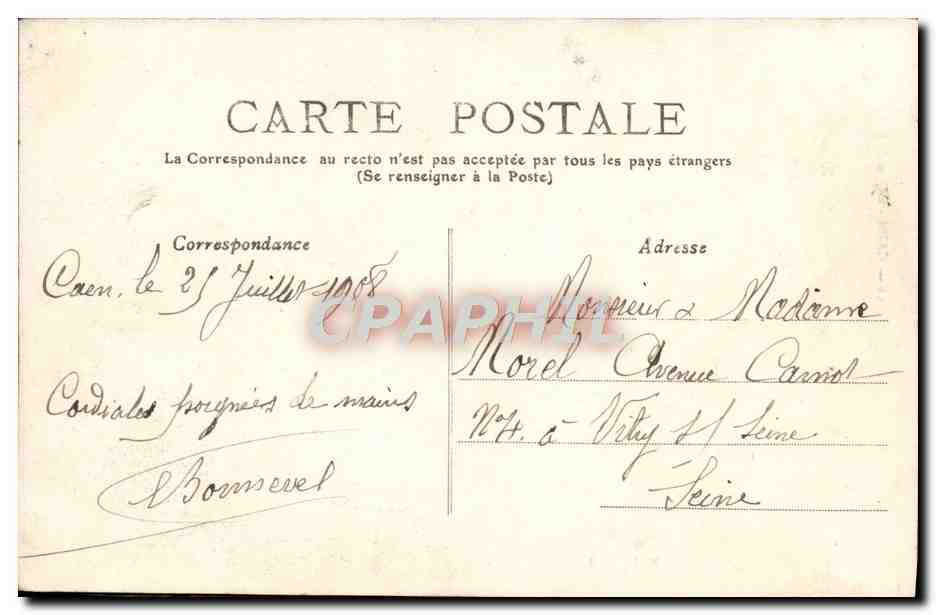 CARTE POSTALE
La Correspondance au recto n'est pas acceptée par tous les pays étrangers
(Se renseigner à la Poste)
Correspondance
Caen, le 25 Juillet 1908
Cordiales poignées de mains
Bonnevel
Adresse
Monsieur & Madame
Morel Avenue Carnot
N°4. à Vitry s/ Seine
Seine
CPAPHIL